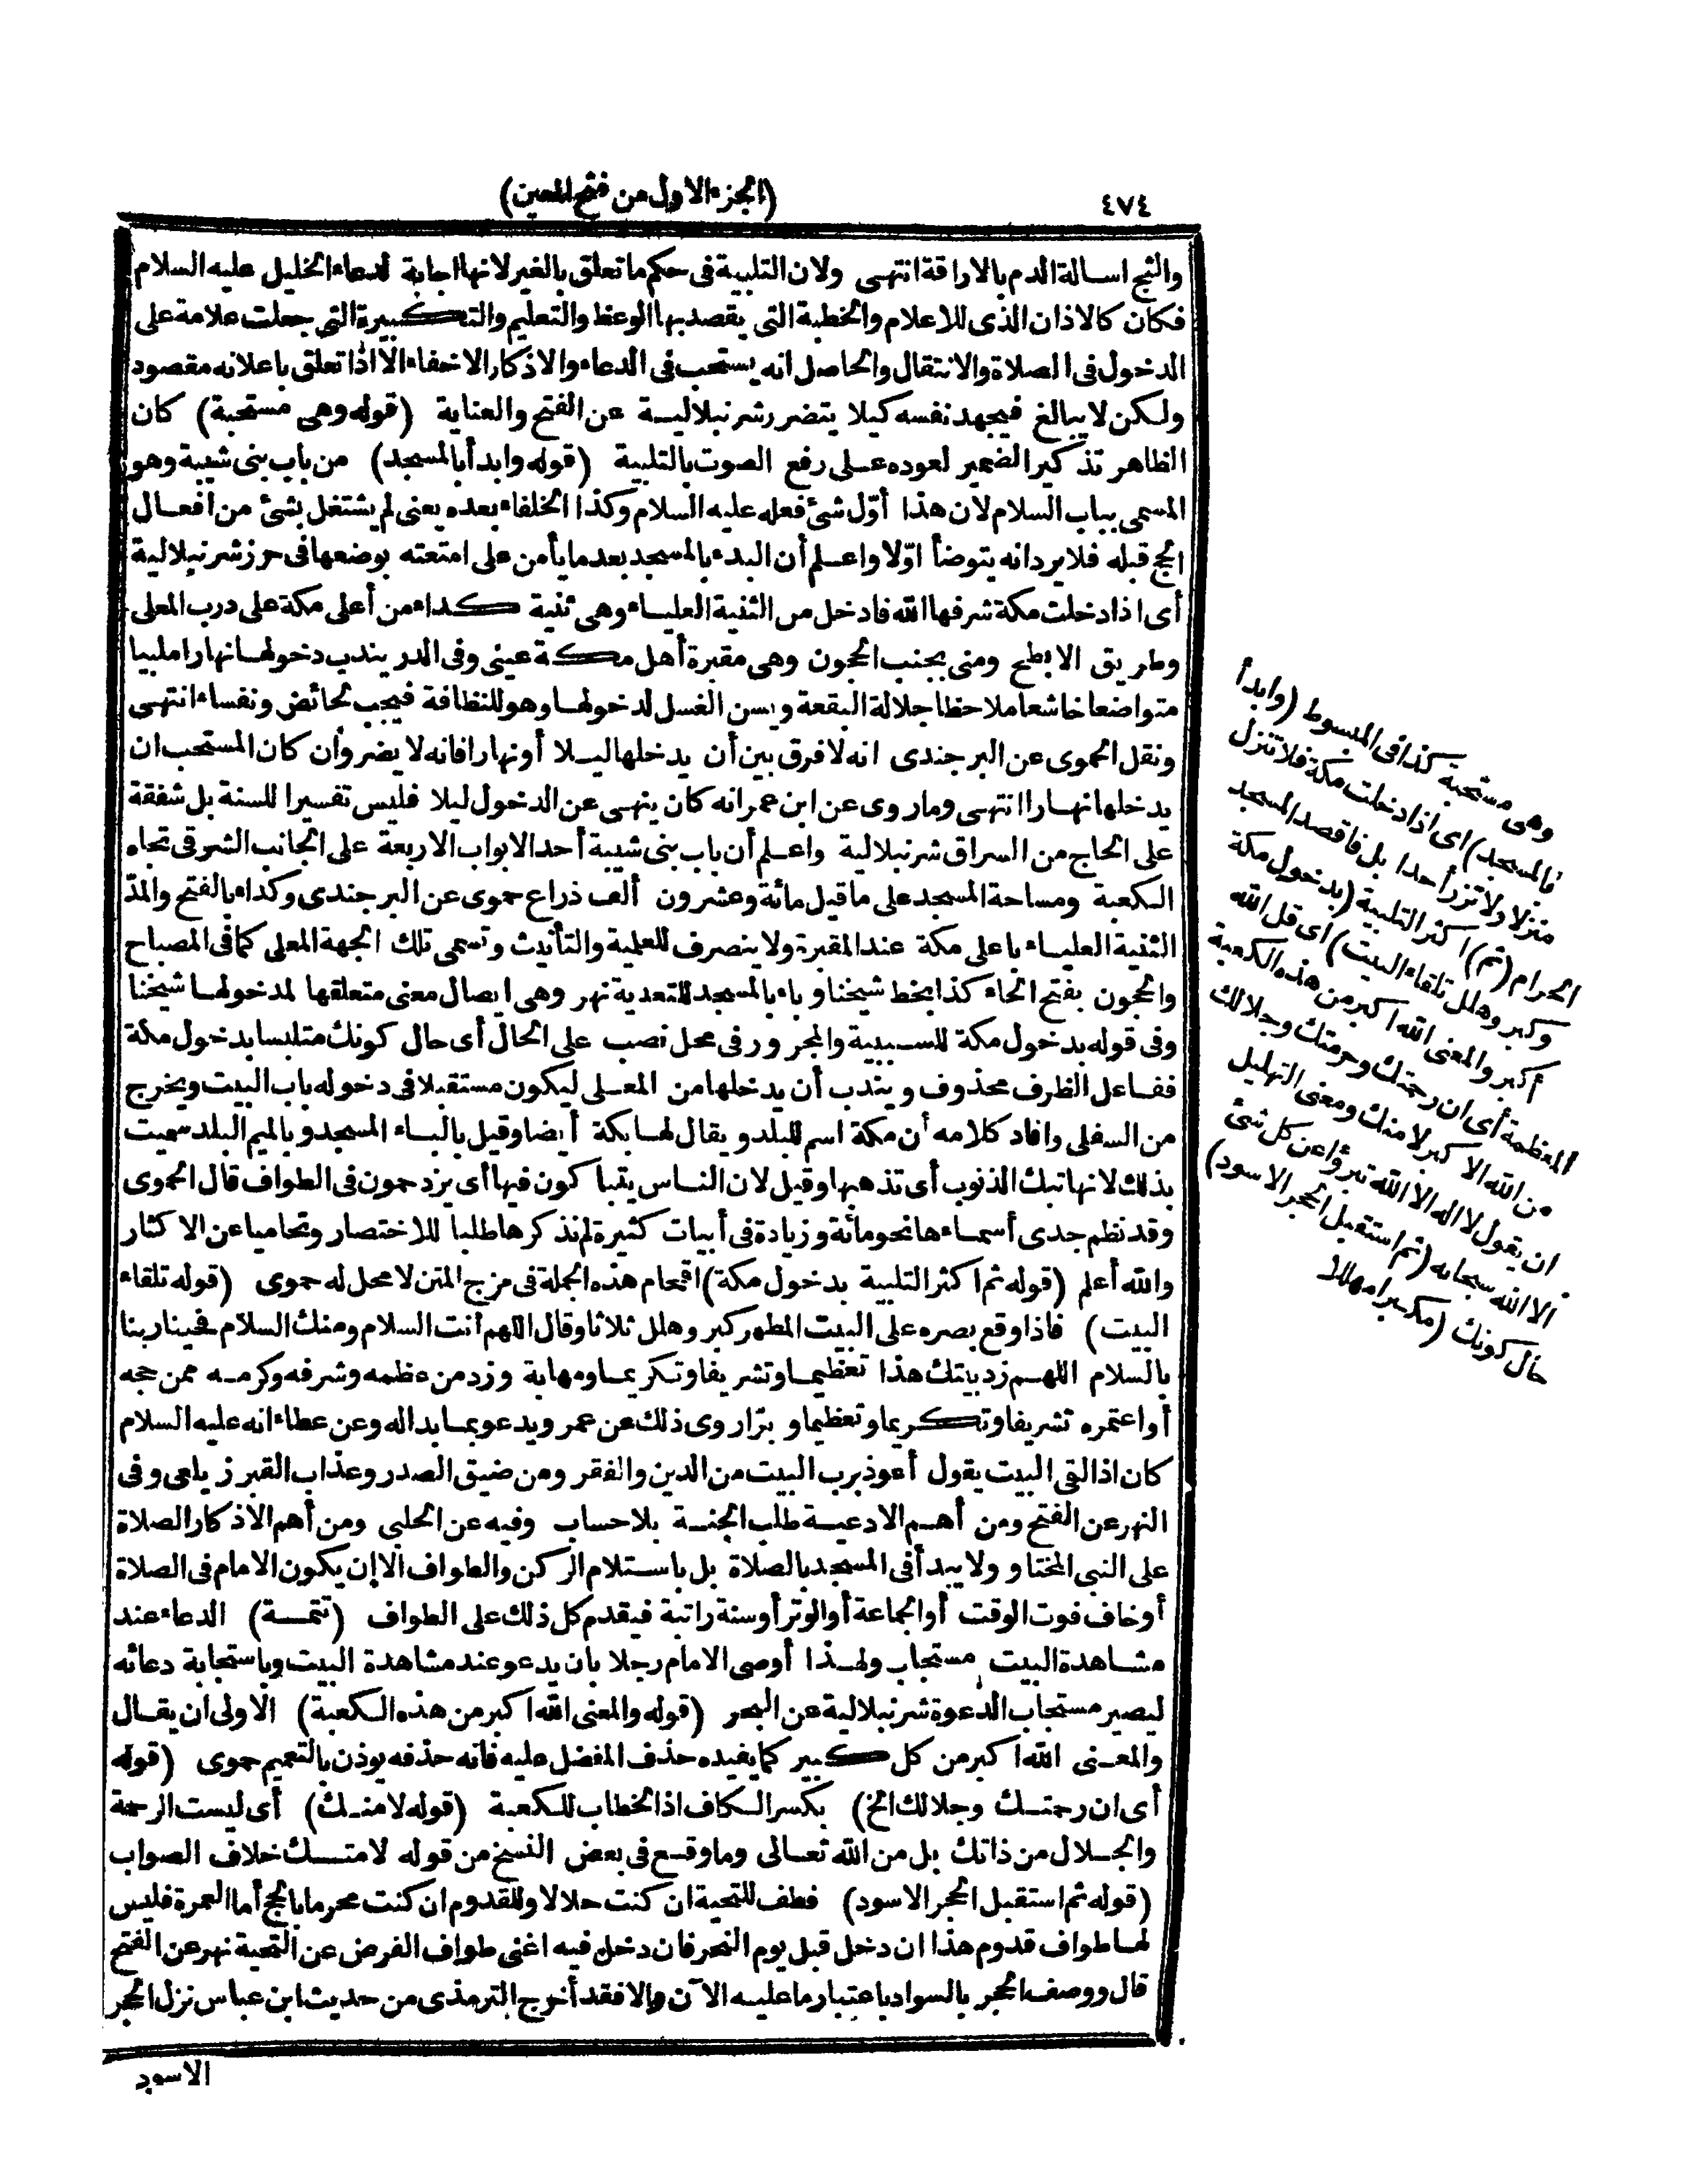 ٤٧٤
(الجزء الاول من فتح المعين)
والثج اسالة الدم بالاراقة انتهى ولان التلبية فى حكم ما تعلق بالغير لانها اجابة لدعاء الخليل عليه السلام
فكان كالاذان الذى للاعلام والخطبة التى يقصد بها الوعظ والتعليم والتكبيرة التى جعلت علامة على
الدخول فى الصلاة والانتقال والحاصل انه يستحب فى الدعاء والاذكار الاخفاء الا اذا تعلق باعلانه مقصود
ولكن لا يبالغ فيجهد نفسه كيلا يتضرر شرنبلالية عن الفتح والعناية (قوله وهى مستحبة) كان
الظاهر تذكير الضمير لعوده على رفع الصوت بالتلبية (قوله وابدأ بالمسجد) من باب بنى شيبة وهو
المسمى بباب السلام لان هذا أوّل شئ فعله عليه السلام وكذا الخلفاء بعده يعنى لم يشتغل بشئ من افعال
الحج قبله فلا يرد انه يتوضأ اوّلا واعلم أن البدء بالمسجد بعد ما يأمن على امتعته بوضعها فى حرز شرنبلالية
أى اذا دخلت مكة شرفها الله فادخل من الثنية العلياء وهى ثنية كداء من أعلى مكة على درب المعلى
وطريق الابطح ومنى بجنب الحجون وهى مقبرة أهل مكة عينى وفى الدر يندب دخولها نهارا ملبيا
متواضعا خاشعا ملاحظا جلالة البقعة ويسن الغسل لدخولها وهو للنظافة فيجب لحائض ونفساء انتهى
ونقل الحموى عن البرجندى انه لا فرق بين أن يدخلها ليلا أو نهارا فانه لا يضر وأن كان المستحب ان
يدخلها نهارا انتهى وما روى عن ابن عمر انه كان ينهى عن الدخول ليلا فليس تفسيرا للسنة بل شفقة
على الحاج من السراق شرنبلالية واعلم أن باب بنى شيبة أحد الابواب الاربعة على الجانب الشرقى تجاه
الكعبة ومساحة المسجد على ما قيل مائة وعشرون ألف ذراع حموى عن البرجندى وكداء بالفتح والمدّ
الثنية العلياء باعلى مكة عند المقبرة ولا ينصرف للعلمية والتأنيث وتسمى تلك الجهة المعلى كما فى المصباح
والحجون بفتح الحاء كذا بخط شيخنا وباء بالمسجد للتعدية نهر وهى ايصال معنى متعلقها لمدخولها شيخنا
وفى قوله بدخول مكة للسببية والمجرور فى محل نصب على الحال أى حال كونك متلبسا بدخول مكة
ففاعل الظرف محذوف ويندب أن يدخلها من المعلى ليكون مستقبلا فى دخوله باب البيت ويخرج
من السفلى وافاد كلامه أن مكة اسم للبلد ويقال لها بكة أيضا وقيل بالباء المسجد وبالميم البلد سميت
بذلك لانها تبك الذنوب أى تذهبها وقيل لان الناس يتباكون فيها أى يزدحمون فى الطواف قال الحموى
وقد نظم جدى أسماءها نحو مائة وزيادة فى أبيات كثيرة لم نذكرها طلبا للاختصار وتحاميا عن الاكثار
والله أعلم (قوله ثم اكثر التلبية بدخول مكة) اقحام هذه الجملة فى مزج المتن لا محل له حموى (قوله تلقاء
البيت) فاذا وقع بصره على البيت المطهر كبر وهلل ثلاثا وقال اللهم أنت السلام ومنك السلام فحينا ربنا
بالسلام اللهم زد بيتك هذا تعظيما وتشريفا وتكريما ومهابة وزد من عظمه وشرفه وكرمه ممن حجه
أو اعتمره تشريفا وتكريما وتعظيما وبرّا روى ذلك عن عمر ويدعو بما بدا له وعن عطاء انه عليه السلام
كان اذا لقى البيت يقول أعوذ برب البيت من الدين والفقر ومن ضيق الصدر وعذاب القبر زيلعى وفى
النهر عن الفتح ومن أهم الادعية طلب الجنة بلا حساب وفيه عن الحلبى ومن أهم الاذكار الصلاة
على النبى المختار ولا يبدأ فى المسجد بالصلاة بل باستلام الركن والطواف الا ان يكون الامام فى الصلاة
أو خاف فوت الوقت أو الجماعة أو الوتر أو سنة راتبة فيقدم كل ذلك على الطواف (تتمة) الدعاء عند
مشاهدة البيت مستجاب ولهذا أوصى الامام رجلا بان يدعو عند مشاهدة البيت وباستجابة دعائه
ليصير مستجاب الدعوة شرنبلالية عن البحر (قوله والمعنى الله اكبر من هذه الكعبة) الاولى ان يقال
والمعنى الله اكبر من كل كبير كما يفيده حذف المفضل عليه فانه حذفه يوذن بالتعميم حموى (قوله
أى ان رحمتك وجلالك الخ) بكسر الكاف اذ الخطاب للكعبة (قوله لا منك) أى ليست الرحمة
والجلال من ذاتك بل من الله تعالى وما وقع فى بعض النسخ من قوله لا متسك خلاف الصواب
(قوله ثم استقبل الحجر الاسود) فطف للتحية ان كنت حلالا وللقدوم ان كنت محرما بالحج أما العمرة فليس
لها طواف قدوم هذا ان دخل قبل يوم النحر فان دخل فيه اغنى طواف الفرض عن التحية نهر عن الفتح
قال ووصف الحجر بالسواد باعتبار ما عليه الآن والا فقد أخرج الترمذى من حديث ابن عباس نزل الحجر
الاسود
وهى مستحبة كذا فى المبسوط (وابدأ
بالمسجد) اى اذا دخلت مكة فلا تنزل
منزلا ولا تزر أحدا بل فاقصد المسجد
الحرام (ثم) اكثر التلبية (بدخول مكة
وكبر وهلل تلقاء البيت) اى قل الله
أكبر والمعنى الله اكبر من هذه الكعبة
المعظمة أى ان رحمتك وحرمتك وجلالك
من الله الاكبر لا منك ومعنى التهليل
ان يقول لا اله الا الله تبرؤا عن كل شئ
الا الله سبحانه (ثم استقبل الحجر الاسود)
حال كونك (مكبرا مهللا